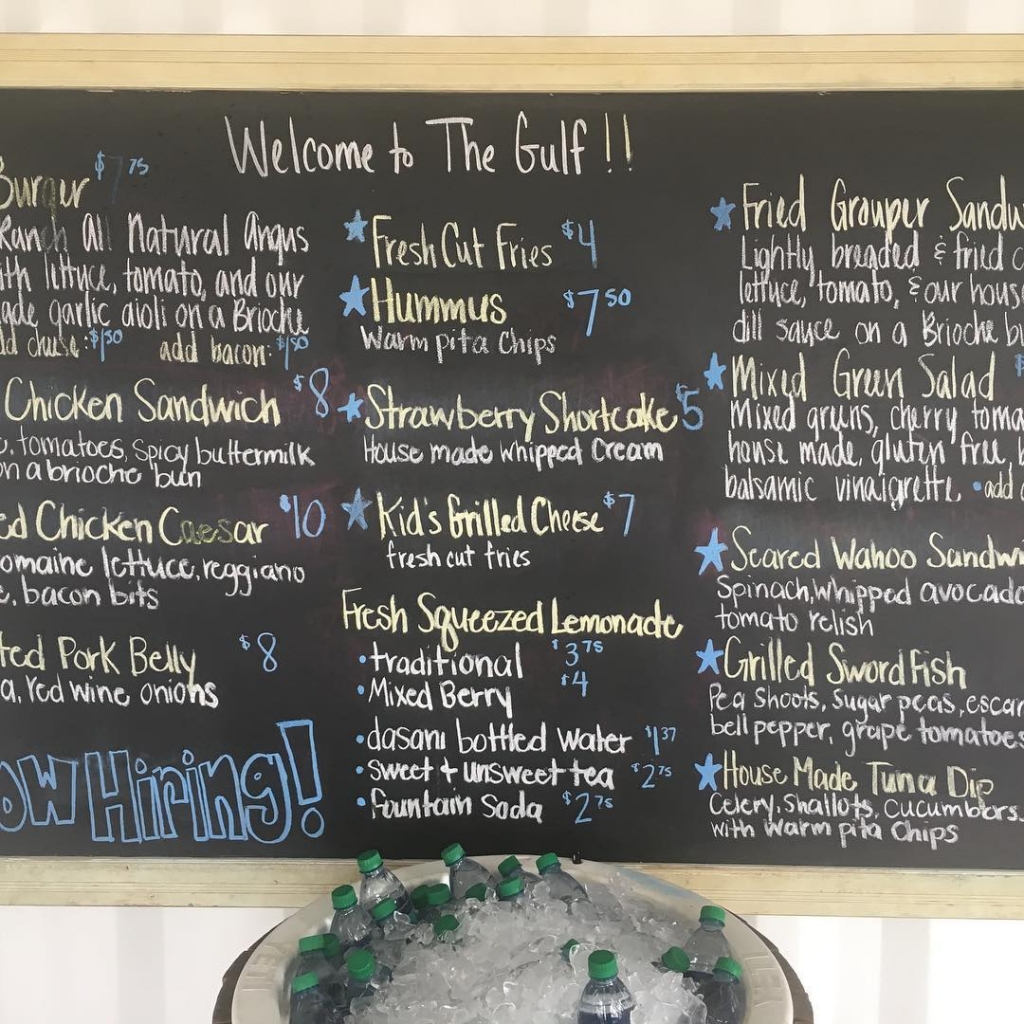 Welcome to The Gulf!!
Burger $7 75
Ranch All Natural Angus
lettuce, tomato, and our
garlic aioli on a Brioche
cheese: $1 50 add bacon: $1 50
Chicken Sandwich $8
tomatoes, Spicy buttermilk
on a brioche bun
Chicken Caesar $10
lettuce, reggiano
bacon bits
Pork Belly $8
red wine, onions
Hiring!
Fresh Cut Fries $4
Hummus $7 50
Warm pita Chips
Strawberry Shortcake $5
House made Whipped Cream
Kid's Grilled Cheese $7
fresh cut fries
Fresh Squeezed Lemonade
• traditional $3 75
• Mixed Berry $4
• dasani bottled water $1 37
• Sweet + unsweet tea $2 75
• fountain Soda $2 75
Fried Grouper
Lightly breaded & fried
lettuce, tomato, & our house
dill sauce on a Brioche
Mixed Green Salad
Mixed greens, cherry
house made, gluten free
balsamic vinaigrette • add
Seared Wahoo
Spinach, whipped avocado
tomato relish
Grilled SwordFish
Pea Shoots, Sugar peas,
bell pepper, grape tomatoes
House Made Tuna Dip
Celery, Shallots, Cucumbers
with warm pita Chips